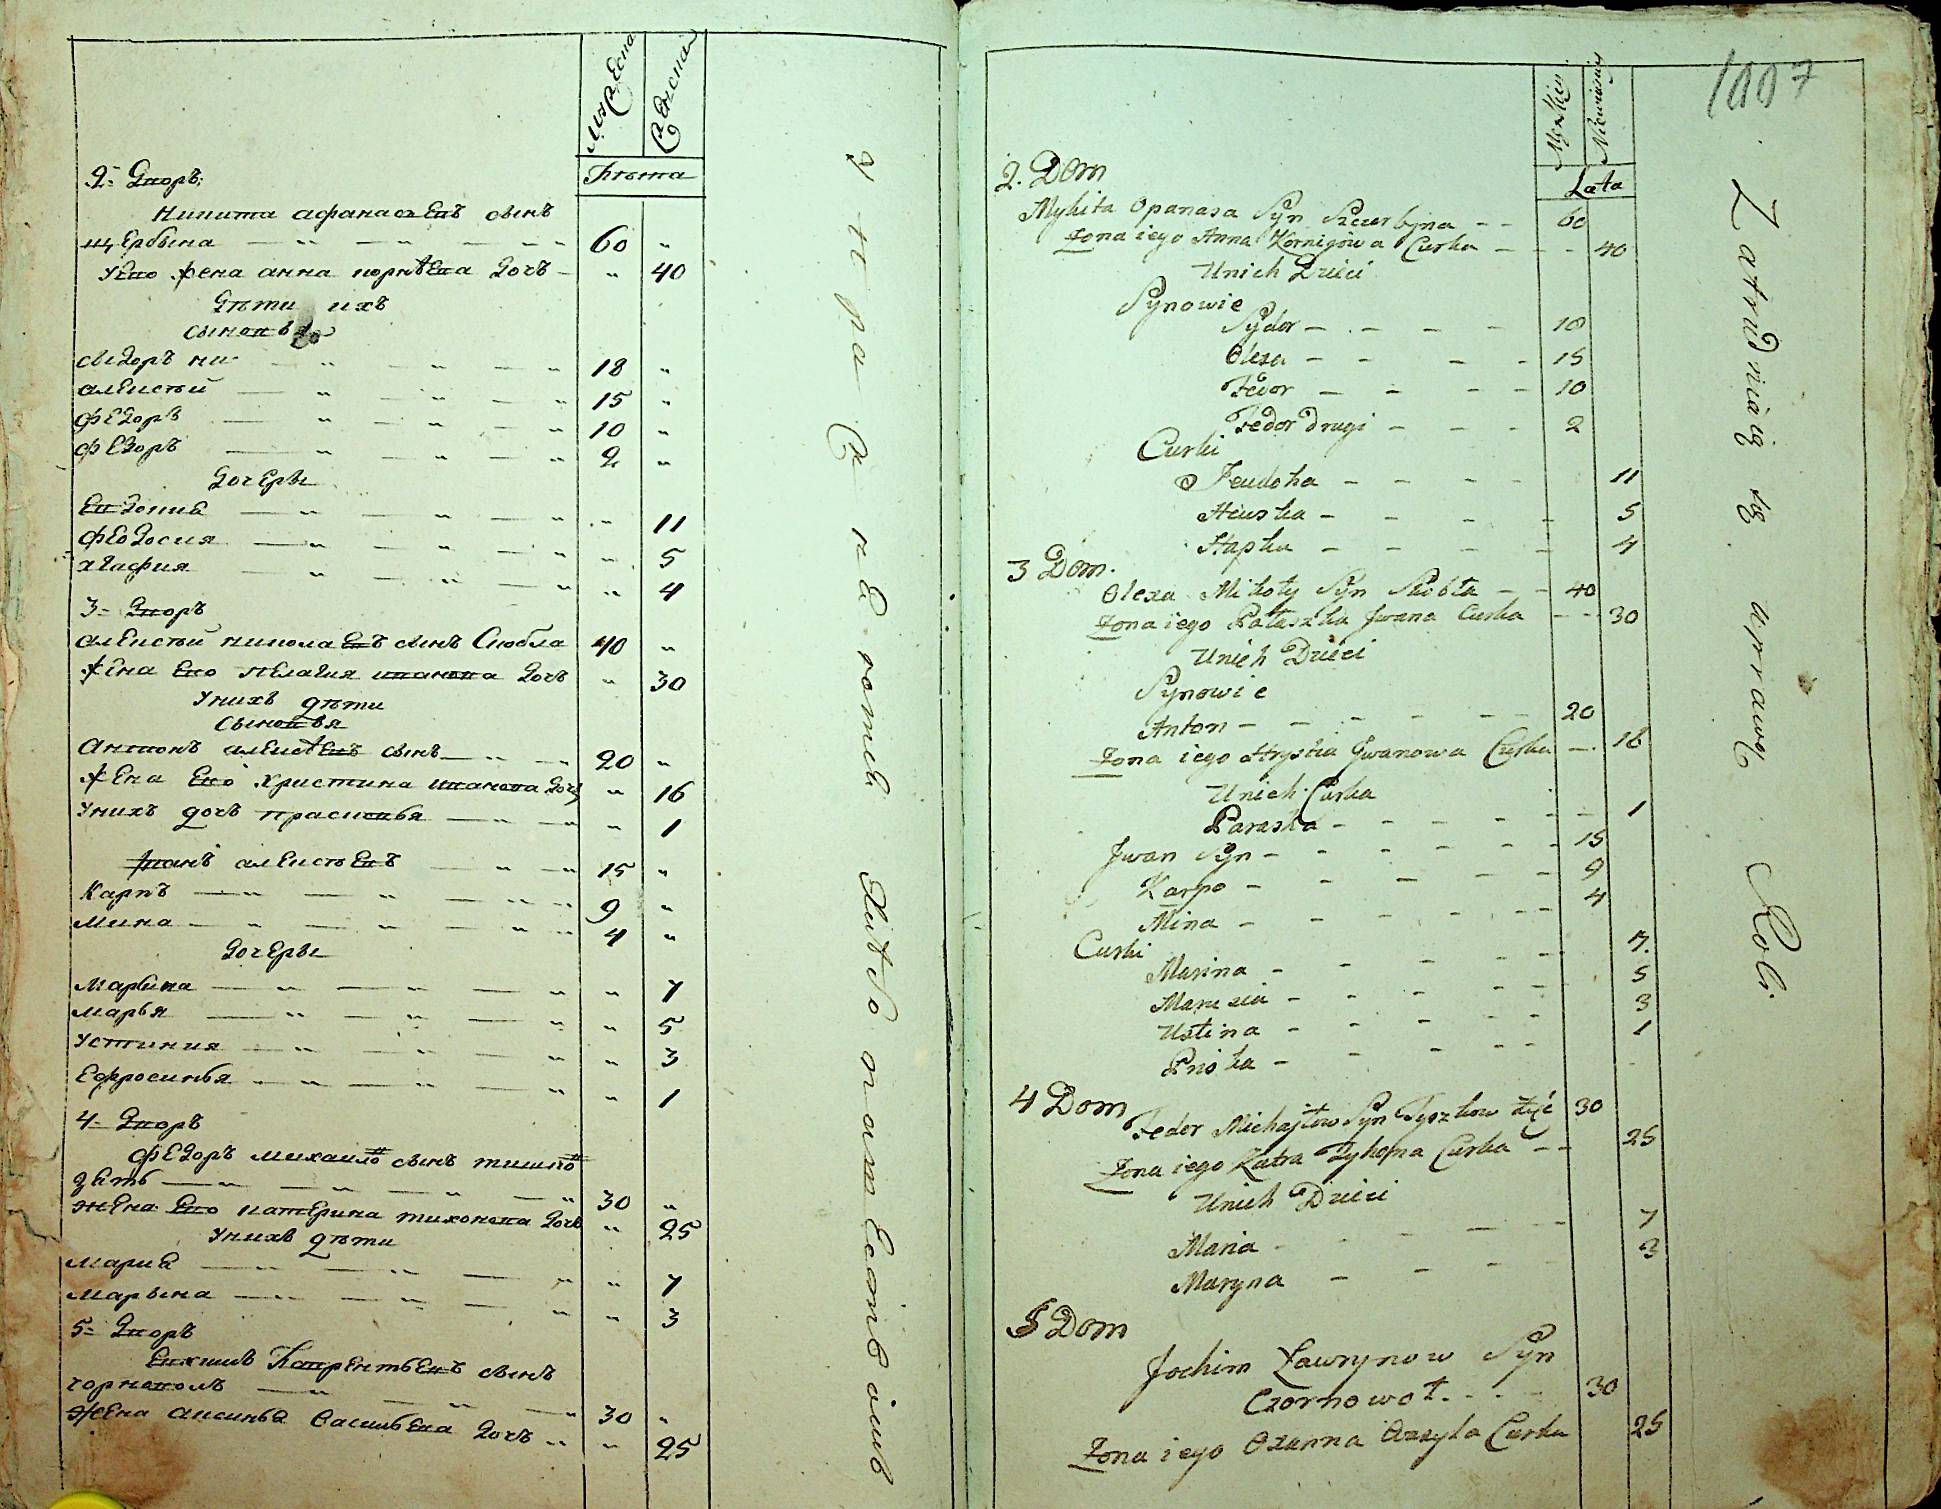 Мужеска
Женска
Лѣта
2= Дворъ:
Никита афанасьевъ сынъ
щербына 60 "
Уево жена анна корнѣева дочъ " 40
Дѣти ихъ
сыновья
сыдоръ ни 18 "
алексѣй 15 "
федоръ 10 "
федоръ 2 "
дочеры
евдокиѣ " 11
феодосия " 5
агафия " 4
3= Дворъ
алексѣй николаевъ сынъ Скобла 40 "
жена ево пелагия иванова дочъ " 30
Унихъ дѣти
сыновья
антонъ алексѣевъ сынъ 20 "
жена ево христина иванова дочъ " 16
Унихъ дочъ прасковья " 1
Иванъ алексѣевъ 15 "
Карпъ 9 "
Мина 4 "
дочеры
Марына " 7
марья " 5
Устиния " 3
Ефросинья " 1
4= Дворъ
федоръ михаиловъ сынъ тишковъ
зять 30 "
жена ево катерина тихонова дочъ " 25
Унихъ дѣти
мариѣ " 7
марына " 3
5= Дворъ
Евхимъ Лаврентьевъ сынъ
чорноволъ 30 "
жена аксиньѣ васильева дочъ " 25
1007
Męzkiey
Niewieściey
Lata
2. Dom
Mykita Opanasa Syn Szczerbyna 60
Żona iego Anna Kornigówa Curka 40
Unich Dzieci
Synowie
Sydor 18
Olexa 15
Fedor 10
Fedor drugi 2
Curki
Feudoha 11
5
Hapka 4
3 Dom.
Olexa Mikoły Syn Skobła 40
Żona iego Pałaszka Jwana Curka 30
Unich Dzieci
Synowie
Anton 20
Żona iego Hrystia Jwanowa Curka 16
Unich Curka
Paraska 1
Jwan Syn 15
Karpo 9
Mina 4
Curki
Marina 7.
Marusia 5
Ustina 3
Priska 1
4 Dom
Fedor Michajłow Syn Tyszkow Zięć 30
Żona iego Katra Tyhona Curka 25
Unich Dzieci
Maria 7
Maryna 3
5 Dom
Jochim Ławrynow Syn
Czornowoł. 30
Żona iego Oxanna Wasyla Curka 25
Zatrudniaią się uprawą Roli.